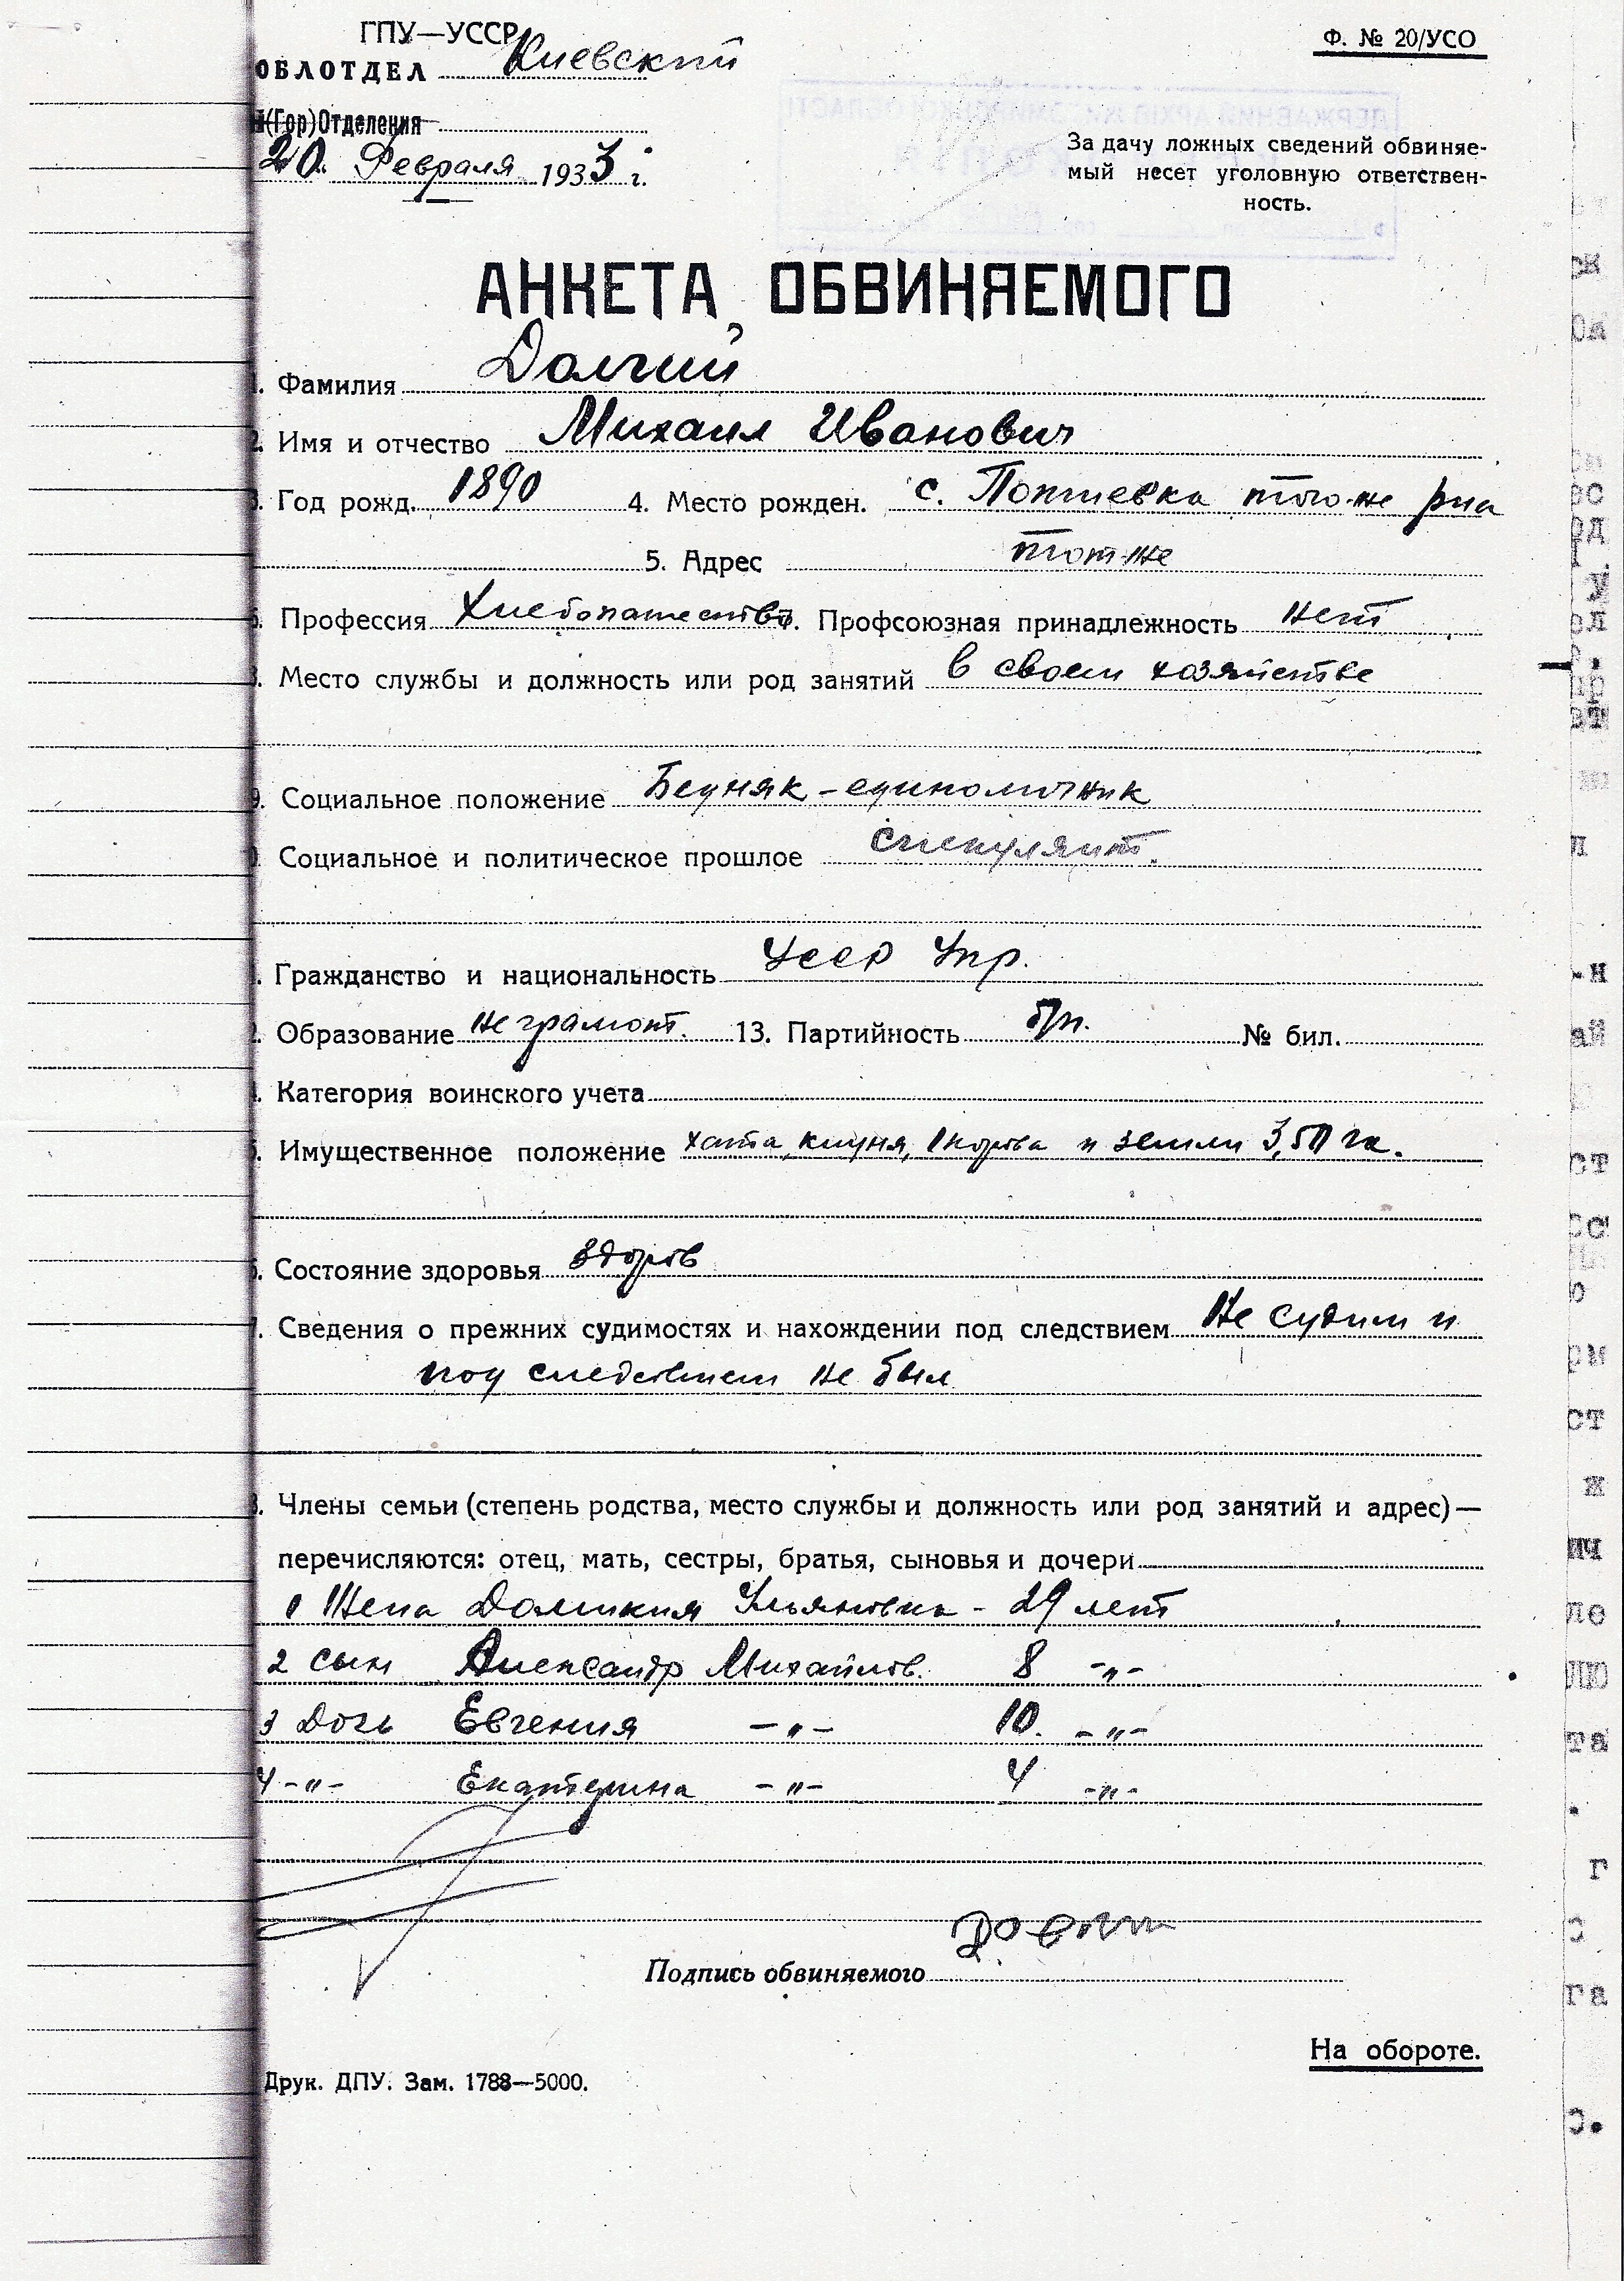 ГПУ—УССР
ОБЛОТДЕЛ Киевский
(Гор)Отделения
20. Февраля 1933 г.
Ф. № 20/УСО
За дачу ложных сведений обвиняе-
мый несет уголовную ответствен-
ность.
АНКЕТА ОБВИНЯЕМОГО
1. Фамилия Долгий
2. Имя и отчество Михаил Иванович
3. Год рожд. 1890 4. Место рожден. с. того-же р-на
5. Адрес тот-же
6. Профессия Хлебопашество 7. Профсоюзная принадлежность нет
8. Место службы и должность или род занятий в своем хозяйстве
9. Социальное положение Бедняк-единоличник
Социальное и политическое прошлое спекулянт.
Гражданство и национальность УССР Укр.
Образование не грамот. 13. Партийность б/п. № бил.
Категория воинского учета
Имущественное положение хата, клуня, 1 корова и земли 3,50 га.
Состояние здоровья здоров
Сведения о прежних судимостях и нахождении под следствием Не судим и
под следствием не был
Члены семьи (степень родства, место службы и должность или род занятий и адрес)—
перечисляются: отец, мать, сестры, братья, сыновья и дочери
1 Жена Ульяновна - 29 лет
2 сын Александр Михайлов. 8 -"-
3 дочь Евгения -"- 10. -"-
4 -"- Екатерина -"- 4 -"-
Подпись обвиняемого
На обороте.
Друк. ДПУ. Зам. 1788—5000.